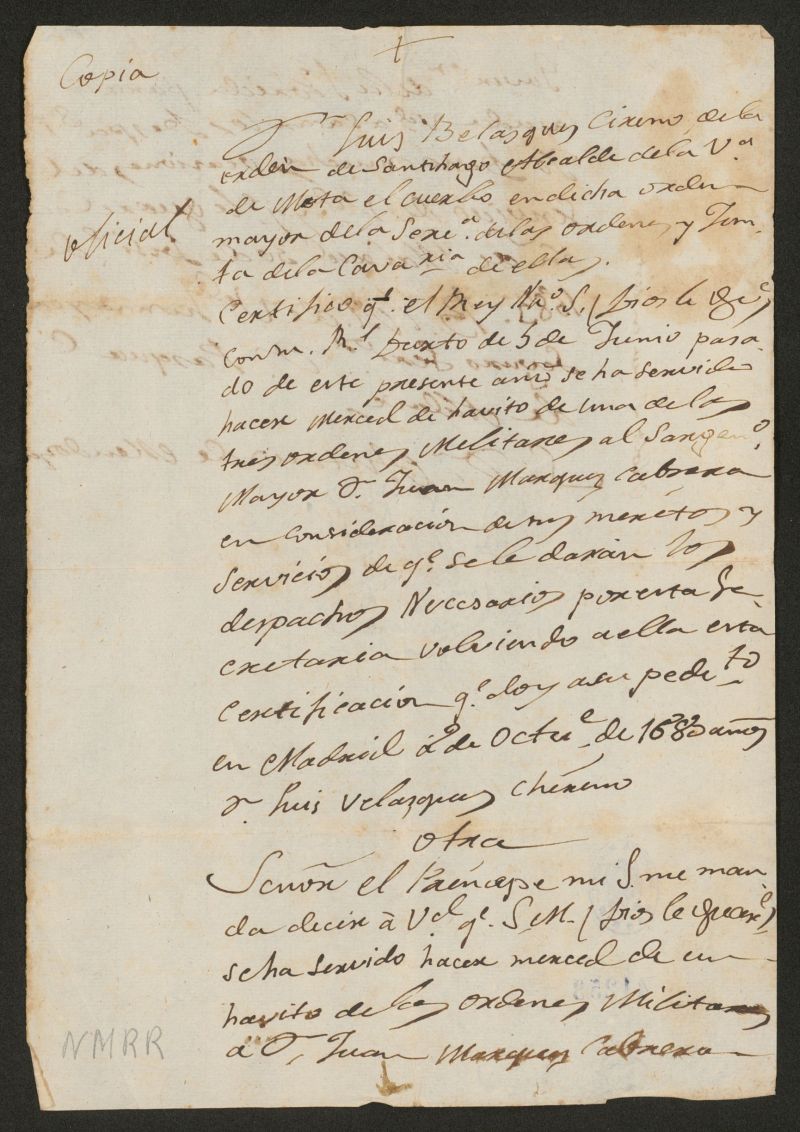 Copia
oficial
Dn. Luis Belasques Cireno, de la
orden de Santhiago Alcalde de la Va
de Mota el cuerbo en dicha orden
mayor de la Secra. de las ordenes y Jun-
ta de la Cavaria de ellas.
Certifico qe. el Rey Nro. S. (Dios le gue)
con m. Rl. Decreto de 5 de Junio pasa-
do de este presente año se ha servido
hacer Merced de havito de una de las
tres ordenes Militares al Sargento.
Mayor Dn. Juan Marques Cabrera
en consideracion de sus meritos y
servicios de qe. se le daran los
despachos Necesarios por esta Se-
cretaria volviendo a ella esta
certificacion qe. doy a su pedito
en Madrid 2 de Octue. de 1680 años
Dn. Luis Velazques Chereno
otra
Señor el Principe mi S. me man-
da decir à Vd qe. S.M. (Dios le guare)
se ha servido hacer merced de un
havito de las ordenes Militares
a Dn. Juan Marques Cabrera
NMRR